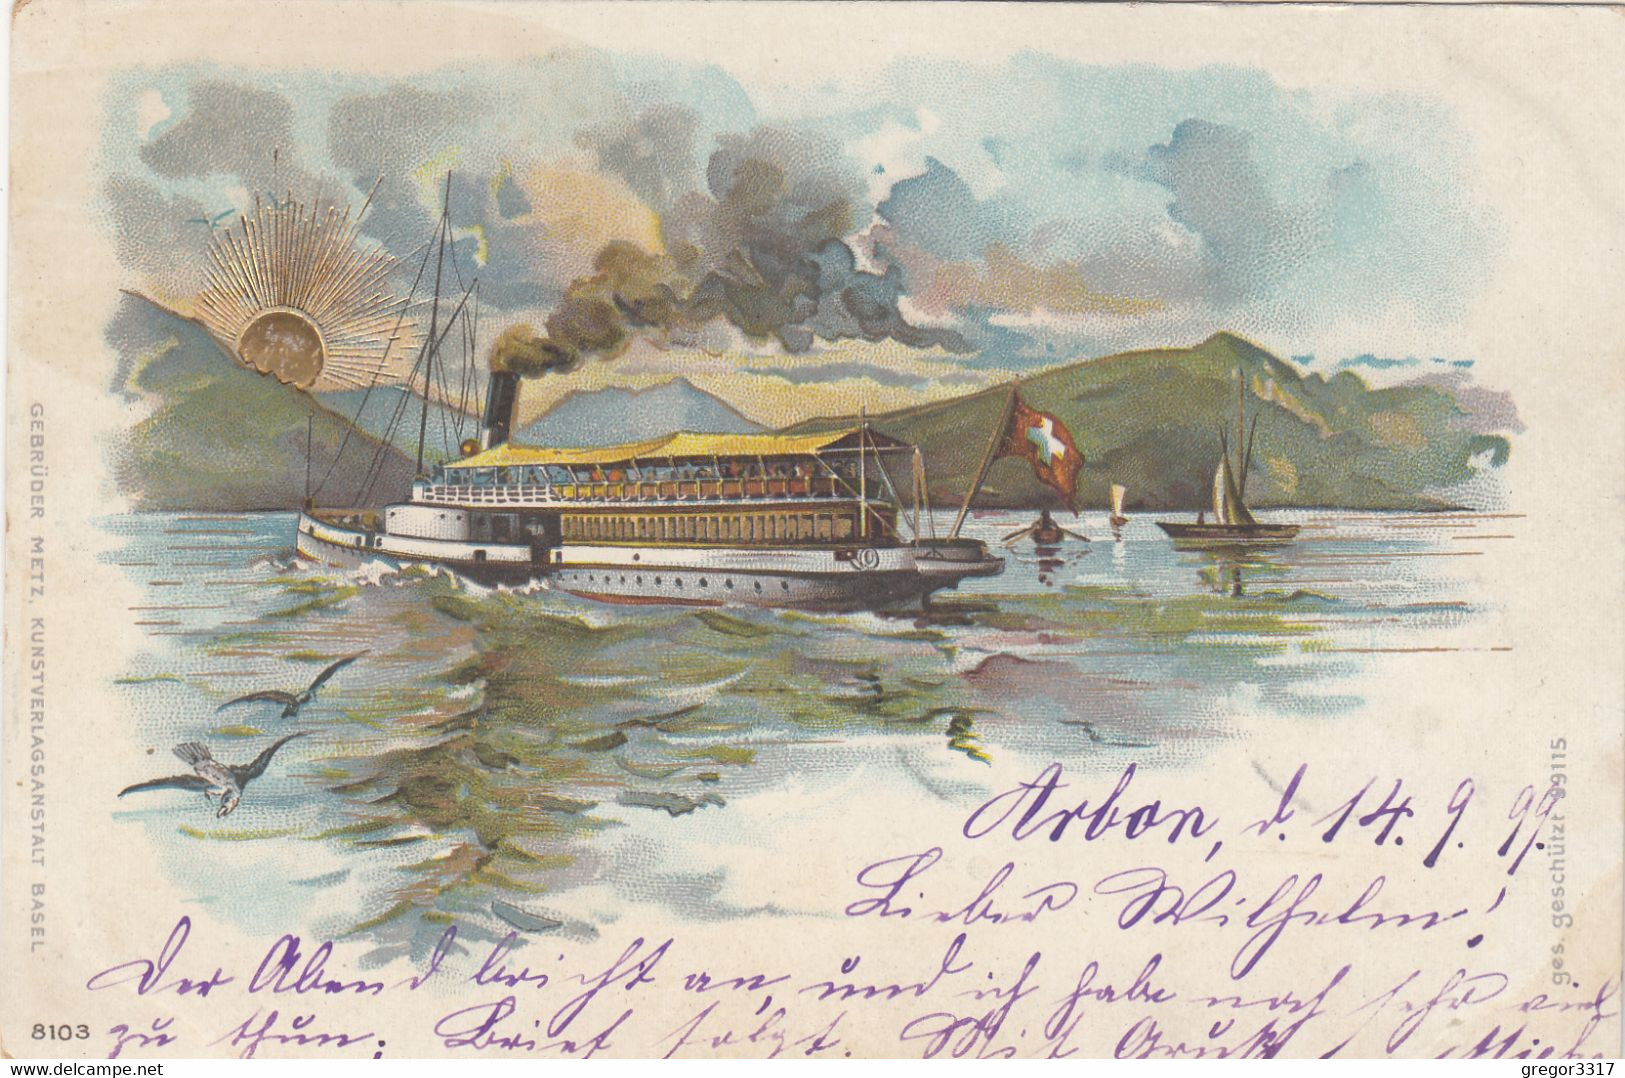 GEBRÜDER METZ, KUNSTVERLAGSANSTALT BASEL
ges. geschützt 99115
Arbon, d. 14. 9. 99.
Lieber Wilhelm!
Der Abend bricht an, und ich habe noch sehr viel
zu thun; Brief folgt. Mit Gruß
8103
delcampe.net
gregor3317